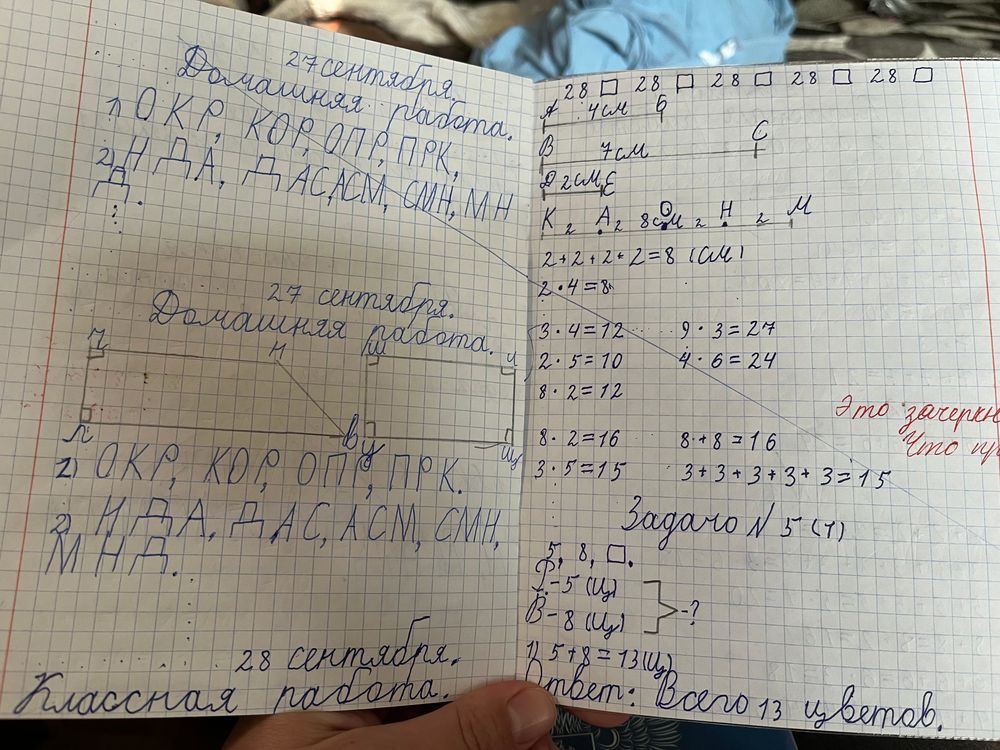 27 сентября.
Домашняя работа.
1) ОКР, КОР, ОПР, ПРК,
2) НДА, ДАС, АСМ, СМН, МН
Д.
27 сентября.
Домашняя работа.
Л В У Щ
2) ОКР, КОР, ОПР, ПРК.
2) НДА, ДАС, АСМ, СМН,
МНД.
28 сентября.
Классная работа.
28 □ 28 □ 28 □ 28 □ 28 □
А 4см Б
В 7см С
Д 2см Е
К 2 А 2 8см О 2 Н 2 М
2+2+2+2=8 (см)
2·4=8
3·4=12 9·3=27
2·5=10 4·6=24
8·2=12
Это зачеркн
8·2=16 8+8=16
Что пр
3·5=15 3+3+3+3+3=15
Задачо N 5 (1)
5, 8, □.
Р.-5 (ц)
В-8 (ц)
-?
1) 5+8=13(ц)
Ответ: Всего 13 цветов.